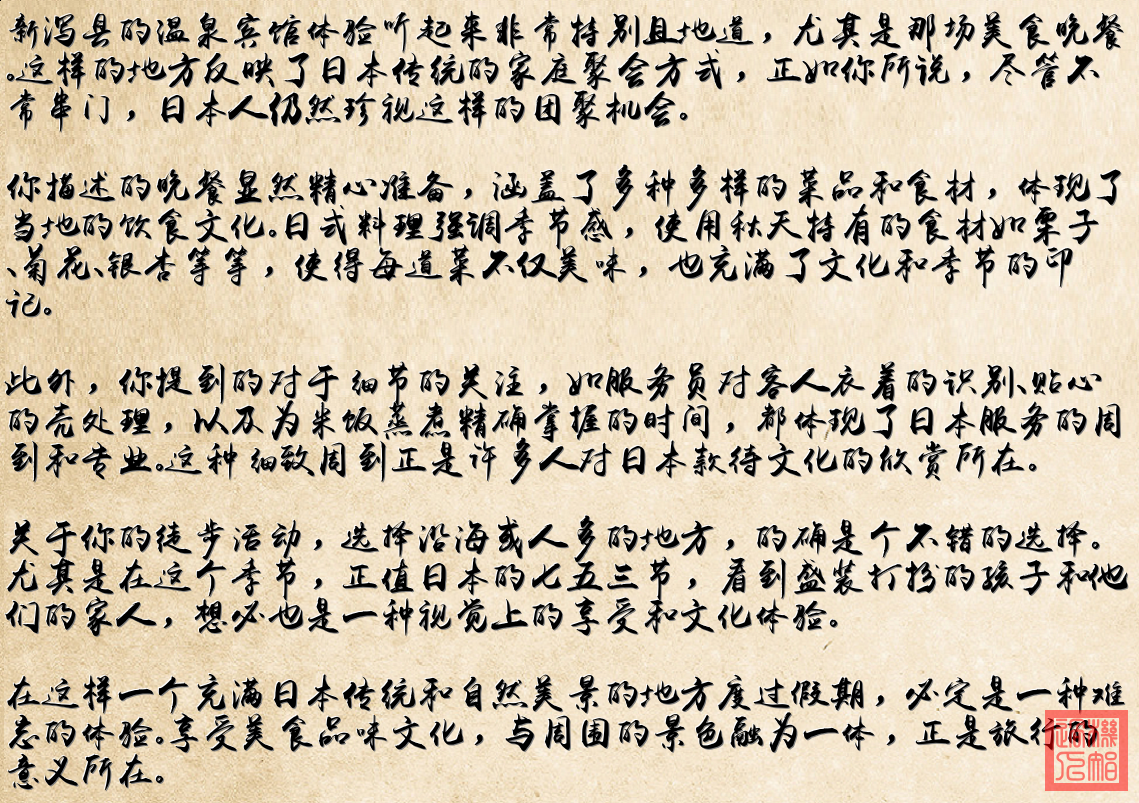 新泻县的温泉宾馆体验听起来非常特别且地道，尤其是那场美食晚餐
。这样的地方反映了日本传统的家庭聚会方式，正如你所说，尽管不
常串门，日本人仍然珍视这样的团聚机会。
你描述的晚餐显然精心准备，涵盖了多种多样的菜品和食材，体现了
当地的饮食文化。日式料理强调季节感，使用秋天特有的食材如栗子
、菊花、银杏等等，使得每道菜不仅美味，也充满了文化和季节的印
记。
此外，你提到的对于细节的关注，如服务员对客人衣着的识别、贴心
的壳处理，以及为米饭蒸煮精确掌握的时间，都体现了日本服务的周
到和专业。这种细致周到正是许多人对日本款待文化的欣赏所在。
关于你的徒步活动，选择沿海或人多的地方，的确是个不错的选择。
尤其是在这个季节，正值日本的七五三节，看到盛装打扮的孩子和他
们的家人，想必也是一种视觉上的享受和文化体验。
在这样一个充满日本传统和自然美景的地方度过假期，必定是一种难
忘的体验。享受美食品味文化，与周围的景色融为一体，正是旅行的
意义所在。